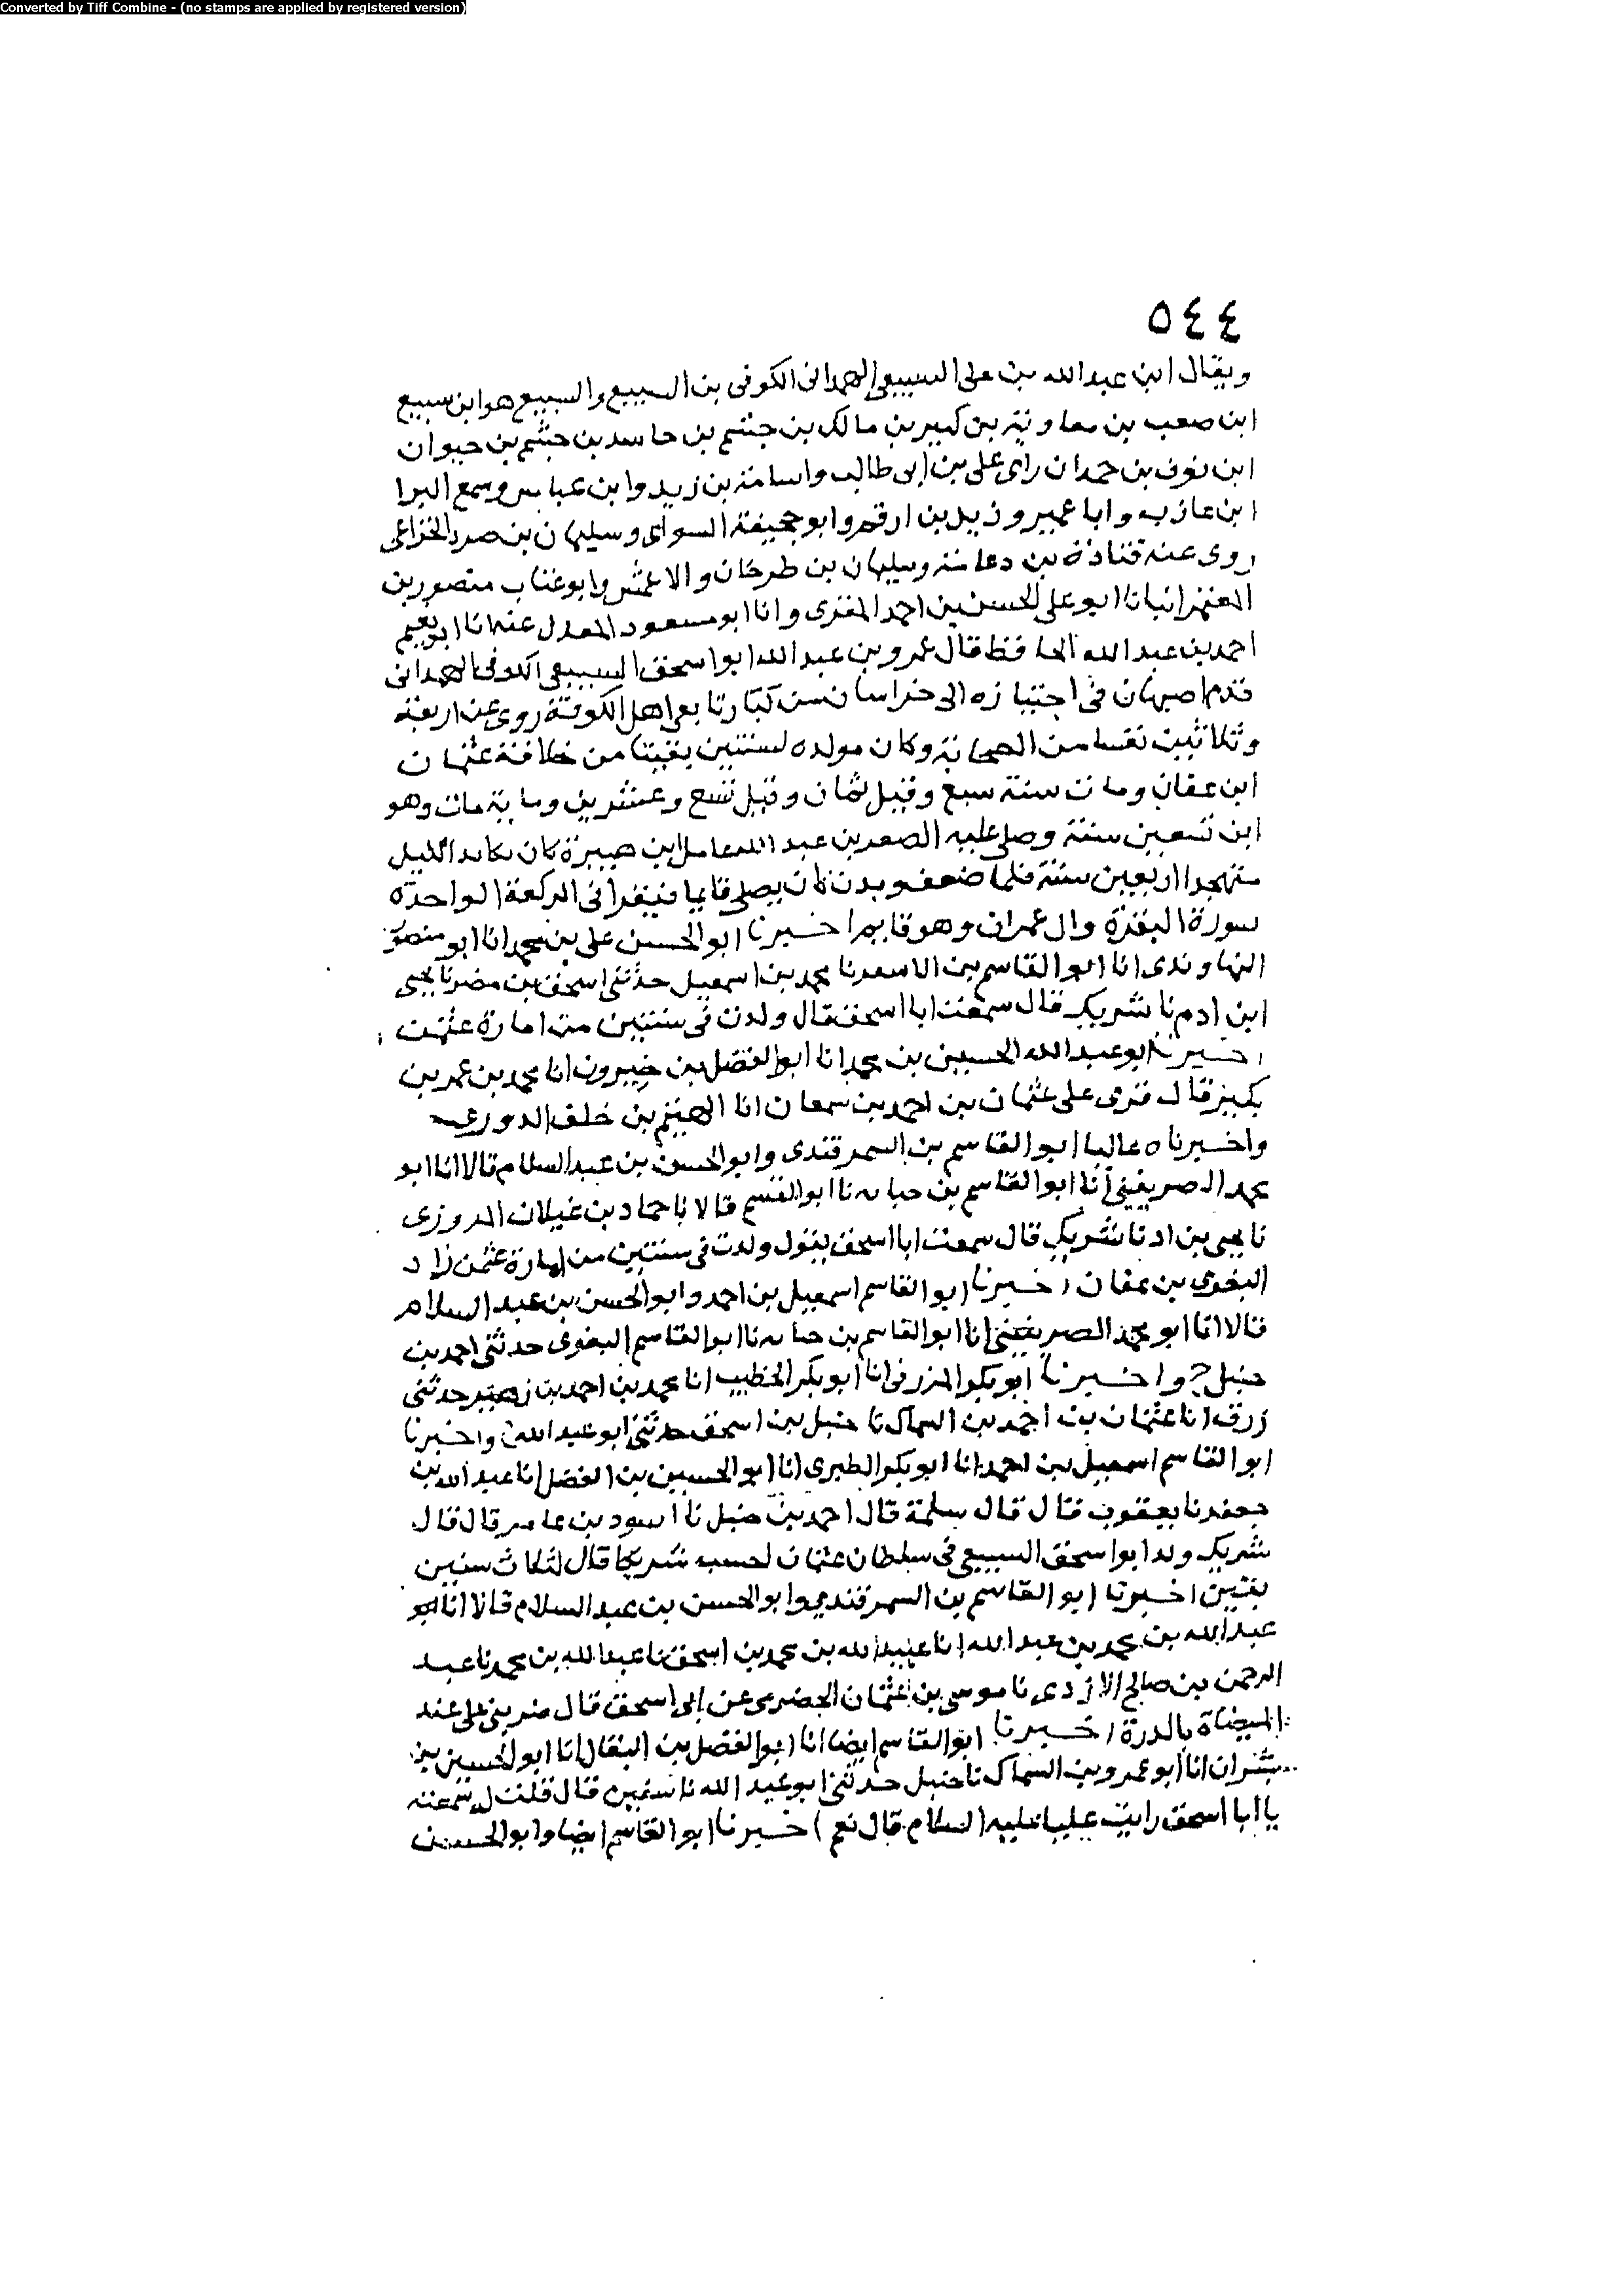 Converted by Tiff Combine - (no stamps are applied by registered version)
٥٤٤
ويقال ابن عبدالله بن على السبيعى الهمدانى الكوفى بن السبيع والسبيع هو ابن سبيع
ابن صعب بن معاوية بن كبير بن مالك بن جشم بن حاسد بن جشم بن حيوان
ابن نوف بن حمدان راى على بن ابى طالب واسامة بن زيد وابن عباس وسمع البرا
ابن عازب وابا عمير وزيد بن ارقم وابو جحيفة السواى وسليمان بن صرد الخزاعى
روى عنه قتادة بن دعامة وسليمان بن طرخان والاعمش وابو عتاب منصور بن
المعتمر انبانا ابو على الحسن بن احمد المقرى وانا ابو مسعود المعدل عنه انا ابو نعيم
احمد بن عبد الله الحافظ قال عمرو بن عبد الله ابو اسحق السبيعى الكوفى الهمدانى
قدم اصبهان فى اجتيازه الى خراسان من كبار تابعى اهل الكوفة روى عن اربعة
وثلاثين نفسا من الصحابة وكان مولده لسنتين بقيتا من خلافة عثمان
ابن عفان ومات سنة سبع وقيل ثمان وقيل تسع وعشرين وماية مات وهو
ابن تسعين سنة وصلى عليه الصقر بن عبد الله عامل ابن هبيرة كان يكابد الليل
متهجدا اربعين سنة فلما ضعف وبدن كان يصلى قايما فيقرا فى الركعة الواحدة
سورة البقرة وال عمران وهو قايم اخبرنا ابو الحسن على بن محمد انا ابو منصور
النهاوندى انا ابو القاسم بن الاسعر نا محمد بن اسمعيل حدثنى اسحق بن مضر نا يحيى
ابن ادم نا شريك قال سمعت ابا اسحق قال ولدت فى سنتين من امارة عثمن
اخبرنا ابو عبد الله الحسين بن محمد انا ابو الفضل بن خيرون انا محمد بن عمر بن
بكير قال قرى على عثمان بن احمد بن سمعان انا الهيثم بن خلف الدورى
واخبرناه عاليا ابو القاسم بن السمرقندى وابو الحسن بن عبد السلام قالا انا ابو
محمد الصريفينى انا ابو القاسم بن حبابه نا ابو القسم قالا نا حماد بن غيلان المروزى
نا يحيى بن ادنا شريك قال سمعت ابا اسحق يقول ولدت فى سنتين من امارة عثمن زاد
البغوى بن عفان اخبرنا ابو القاسم اسمعيل بن احمد وابو الحسن بن عبد السلام
قالا انا ابو محمد الصريفينى انا ابو القاسم بن حبابه نا ابو القاسم البغوى حدثنى احمد بن
حنبل ح واخبرنا ابو بكر المزرفى انا ابو بكر الخطيب انا محمد بن احمد بن زهير حدثنى
زرق انا عثمان بن احمد بن السماك نا حنبل بن اسحق حدثنى ابو عبد الله واخبرنا
ابو القاسم اسمعيل بن احمد انا ابو بكر الطبرى انا ابو الحسين بن الفضل انا عبد الله بن
جعفر نا يعقوب قال قال سلمة قال احمد بن حنبل نا اسود بن عامر قال قال
شريك ولد ابو اسحق السبيعى فى سلطان عثمان احسب شريكا قال لثلاث سنين
بقين اخبرنا ابو القاسم بن السمرقندى وابو الحسن بن عبد السلام قالا انا ابو
عبد الله بن محمد بن عبد الله انا عبيد الله بن محمد بن اسحق نا عبد الله بن محمد نا عبد
الرحمن بن صالح الازدى نا موسى بن عثمان الحضرمى عن ابى اسحق قال ضربنى على عند
الميضاة بالدرة اخبرنا ابو القاسم ايضا انا ابو الفضل بن البقال انا ابو الحسين بن
بشران انا ابو عمرو بن السماك نا حنبل حدثنى ابو عبد الله نا سفين قال قلت له سمعته
يا ابا اسحق رايت عليا عليه السلام قال نعم اخبرنا ابو القاسم ايضا وابو الحسن